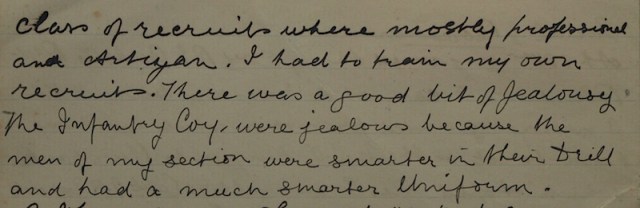 class of recruits where mostly professional
and Artizan. I had to train my own
recruits. There was a good bit of Jealousy
The Infantry Coy. were jealous because the
men of my section were smarter in their Drill
and had a much smarter Uniform.